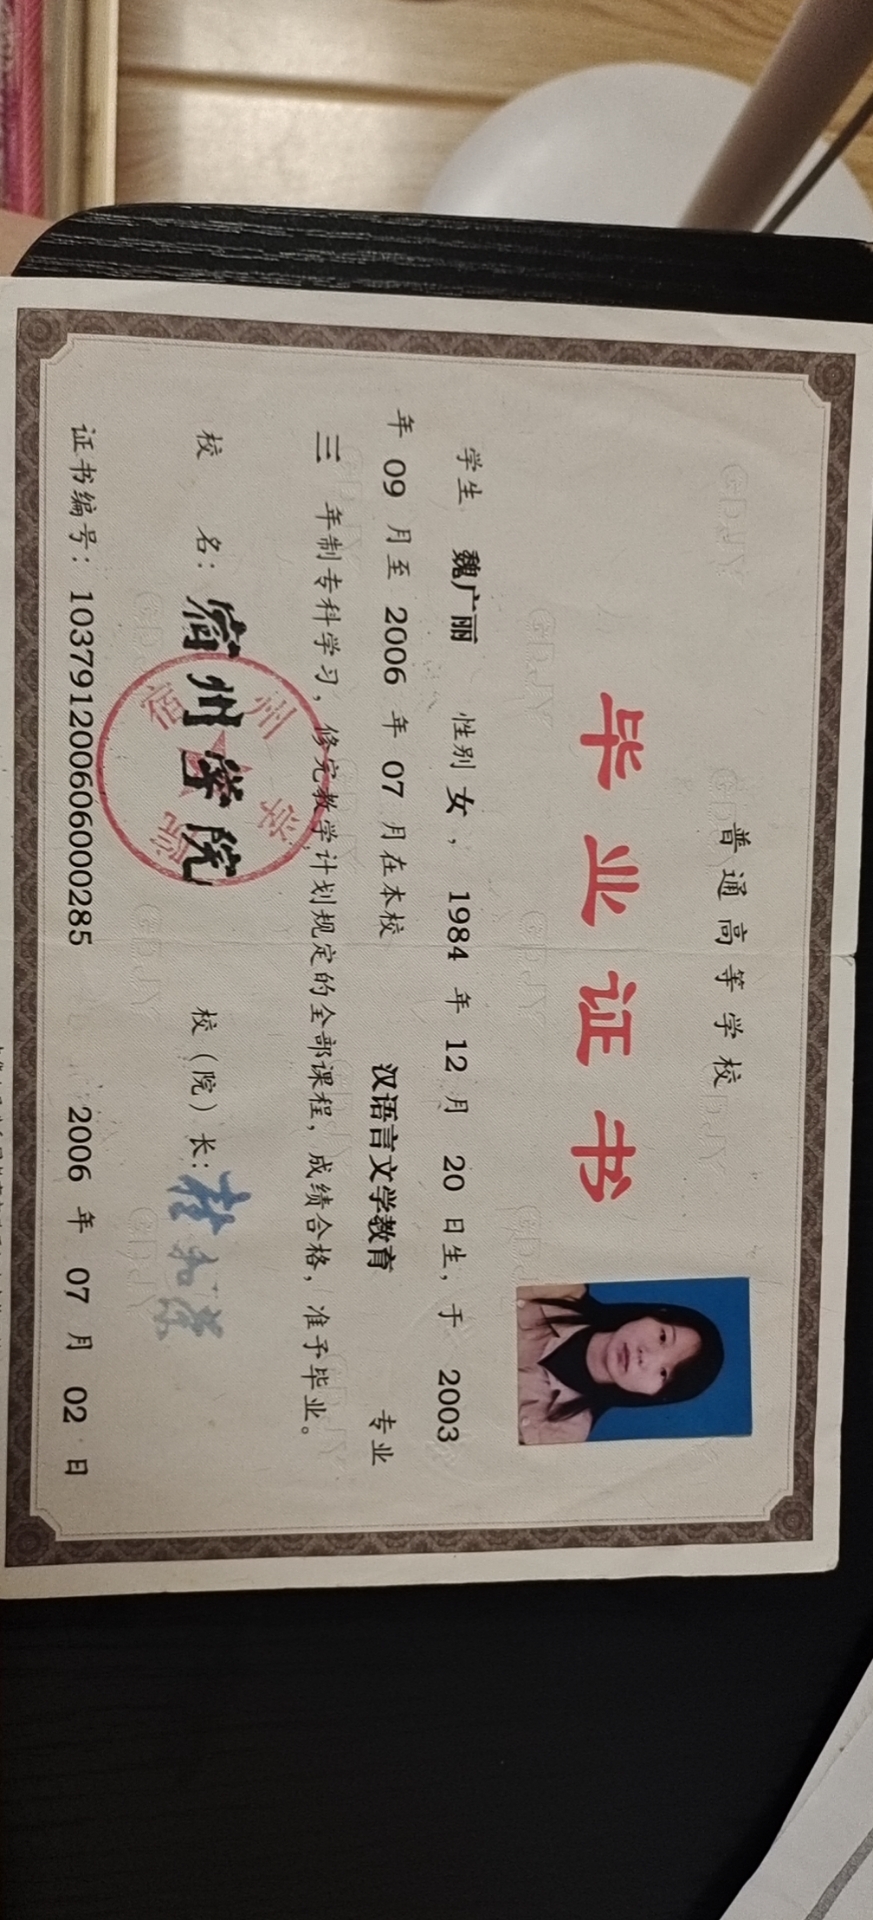 普通高等学校
毕业证书
学生 魏广丽 性别 女， 1984 年 12 月 20 日生，于 2003
年 09 月至 2006 年 07 月在本校 汉语言文学教育 专业
三 年制专科学习，修完教学计划规定的全部课程，成绩合格，准予毕业。
校 名：宿州学院 校（院）长：
宿州学院
证书编号：103791200606000285 2006 年 07 月 02 日
GDJY
GDJY
GDJY
GDJY
GDJY
GDJY